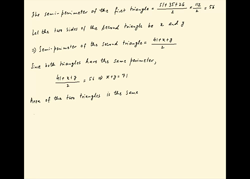 The semi-perimeter of the first triangle = (51+35+26)/2 = 112/2 = 56
Let the two sides of the second triangle be x and y
⇒ Semi-perimeter of the second triangle = (41+x+y)/2
Since both triangles have the same perimeter,
(41+x+y)/2 = 56 ⇒ x+y = 71
Area of the two triangles is the same